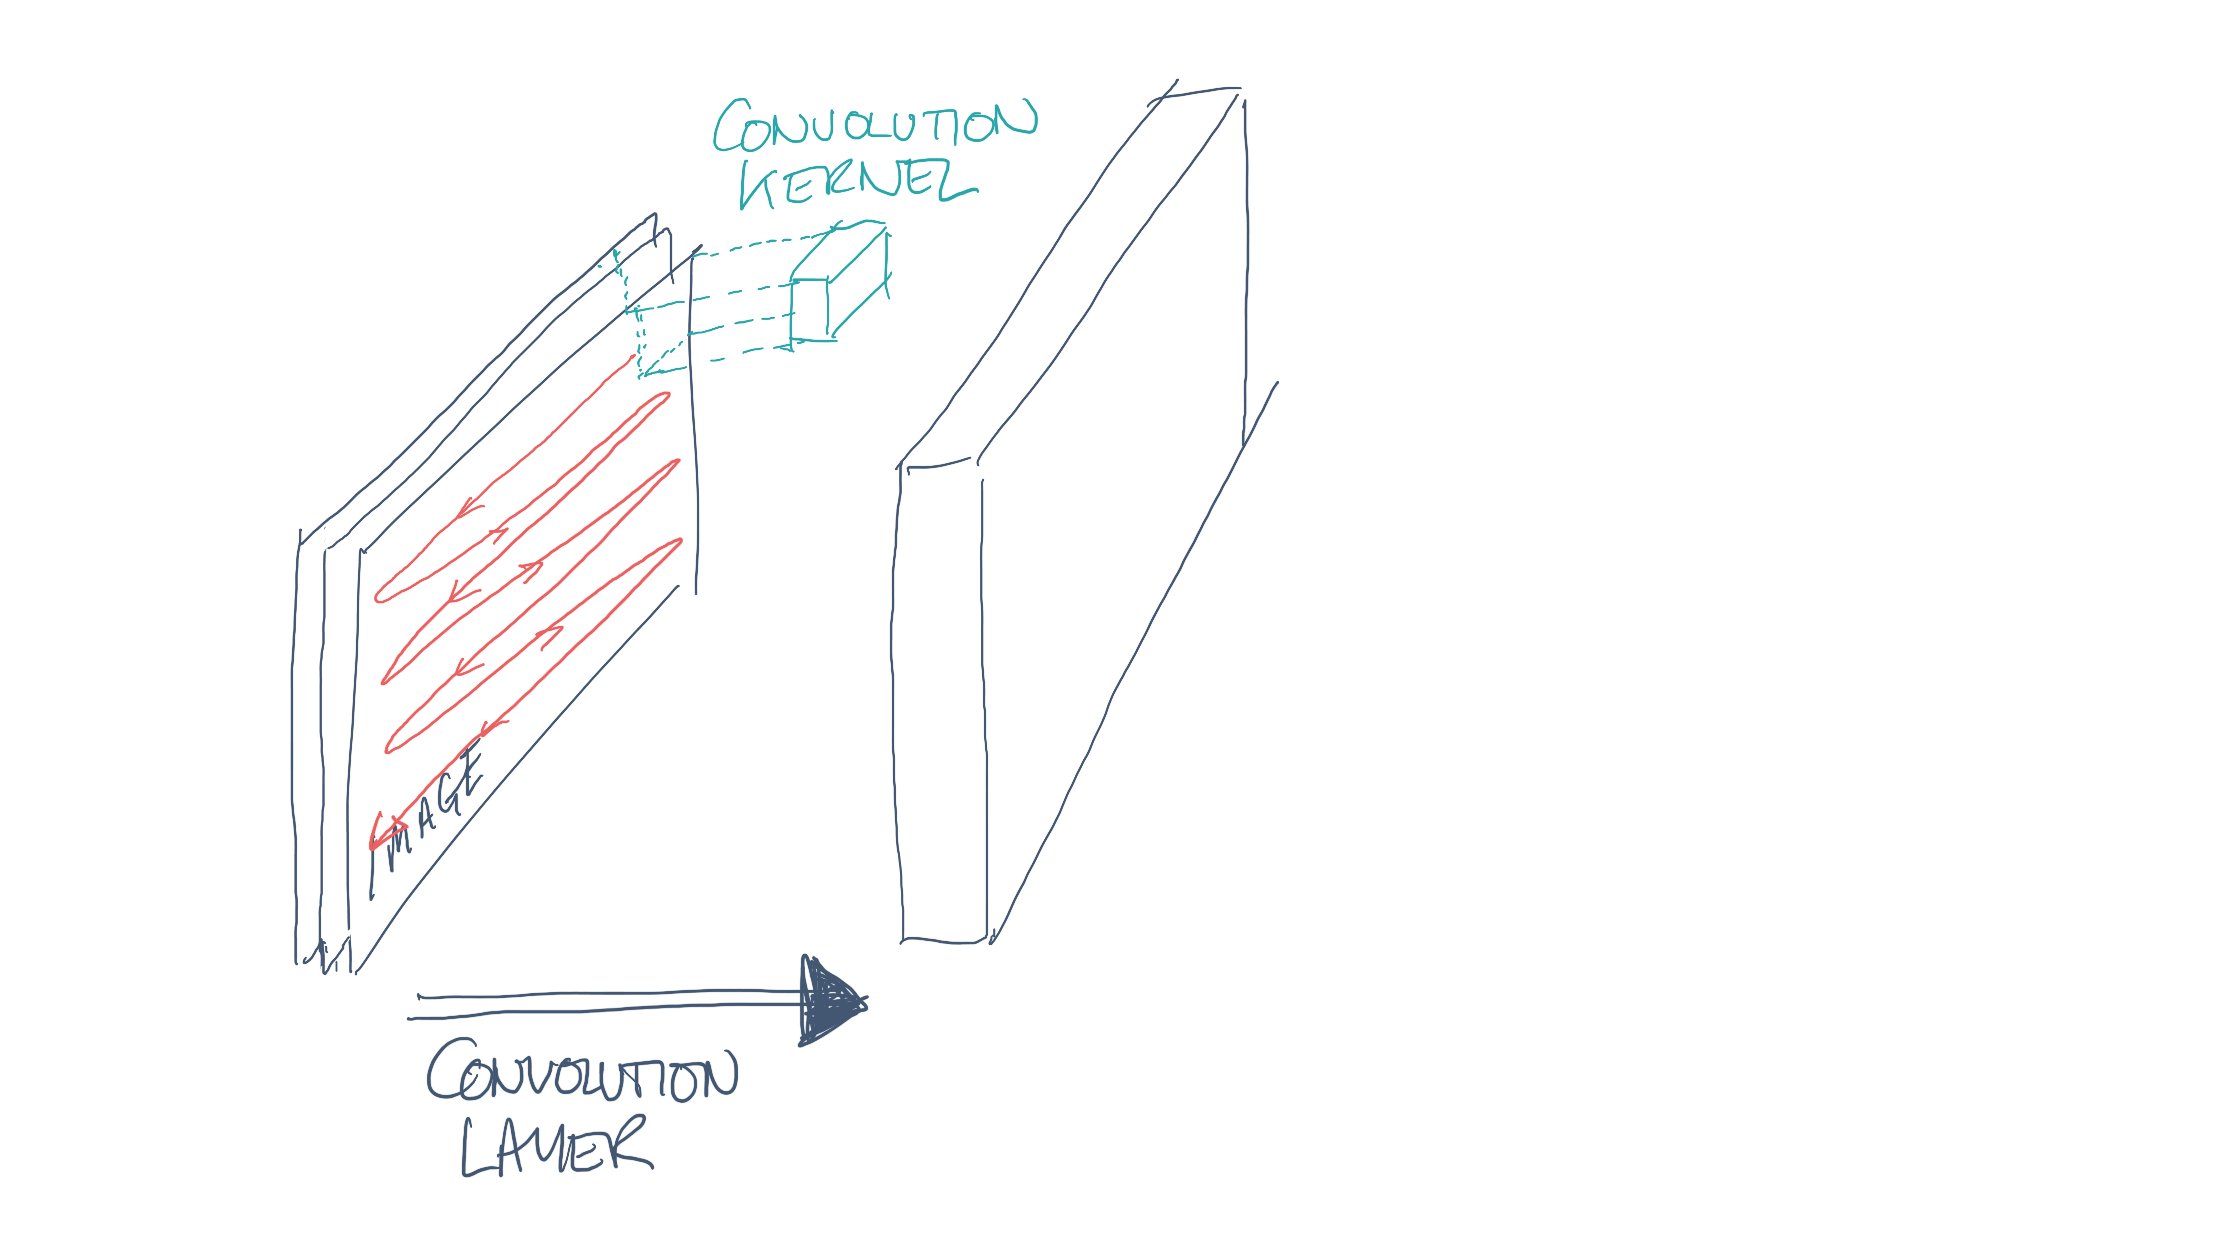 CONVOLUTION
KERNEL
IMAGE
CONVOLUTION
LAYER